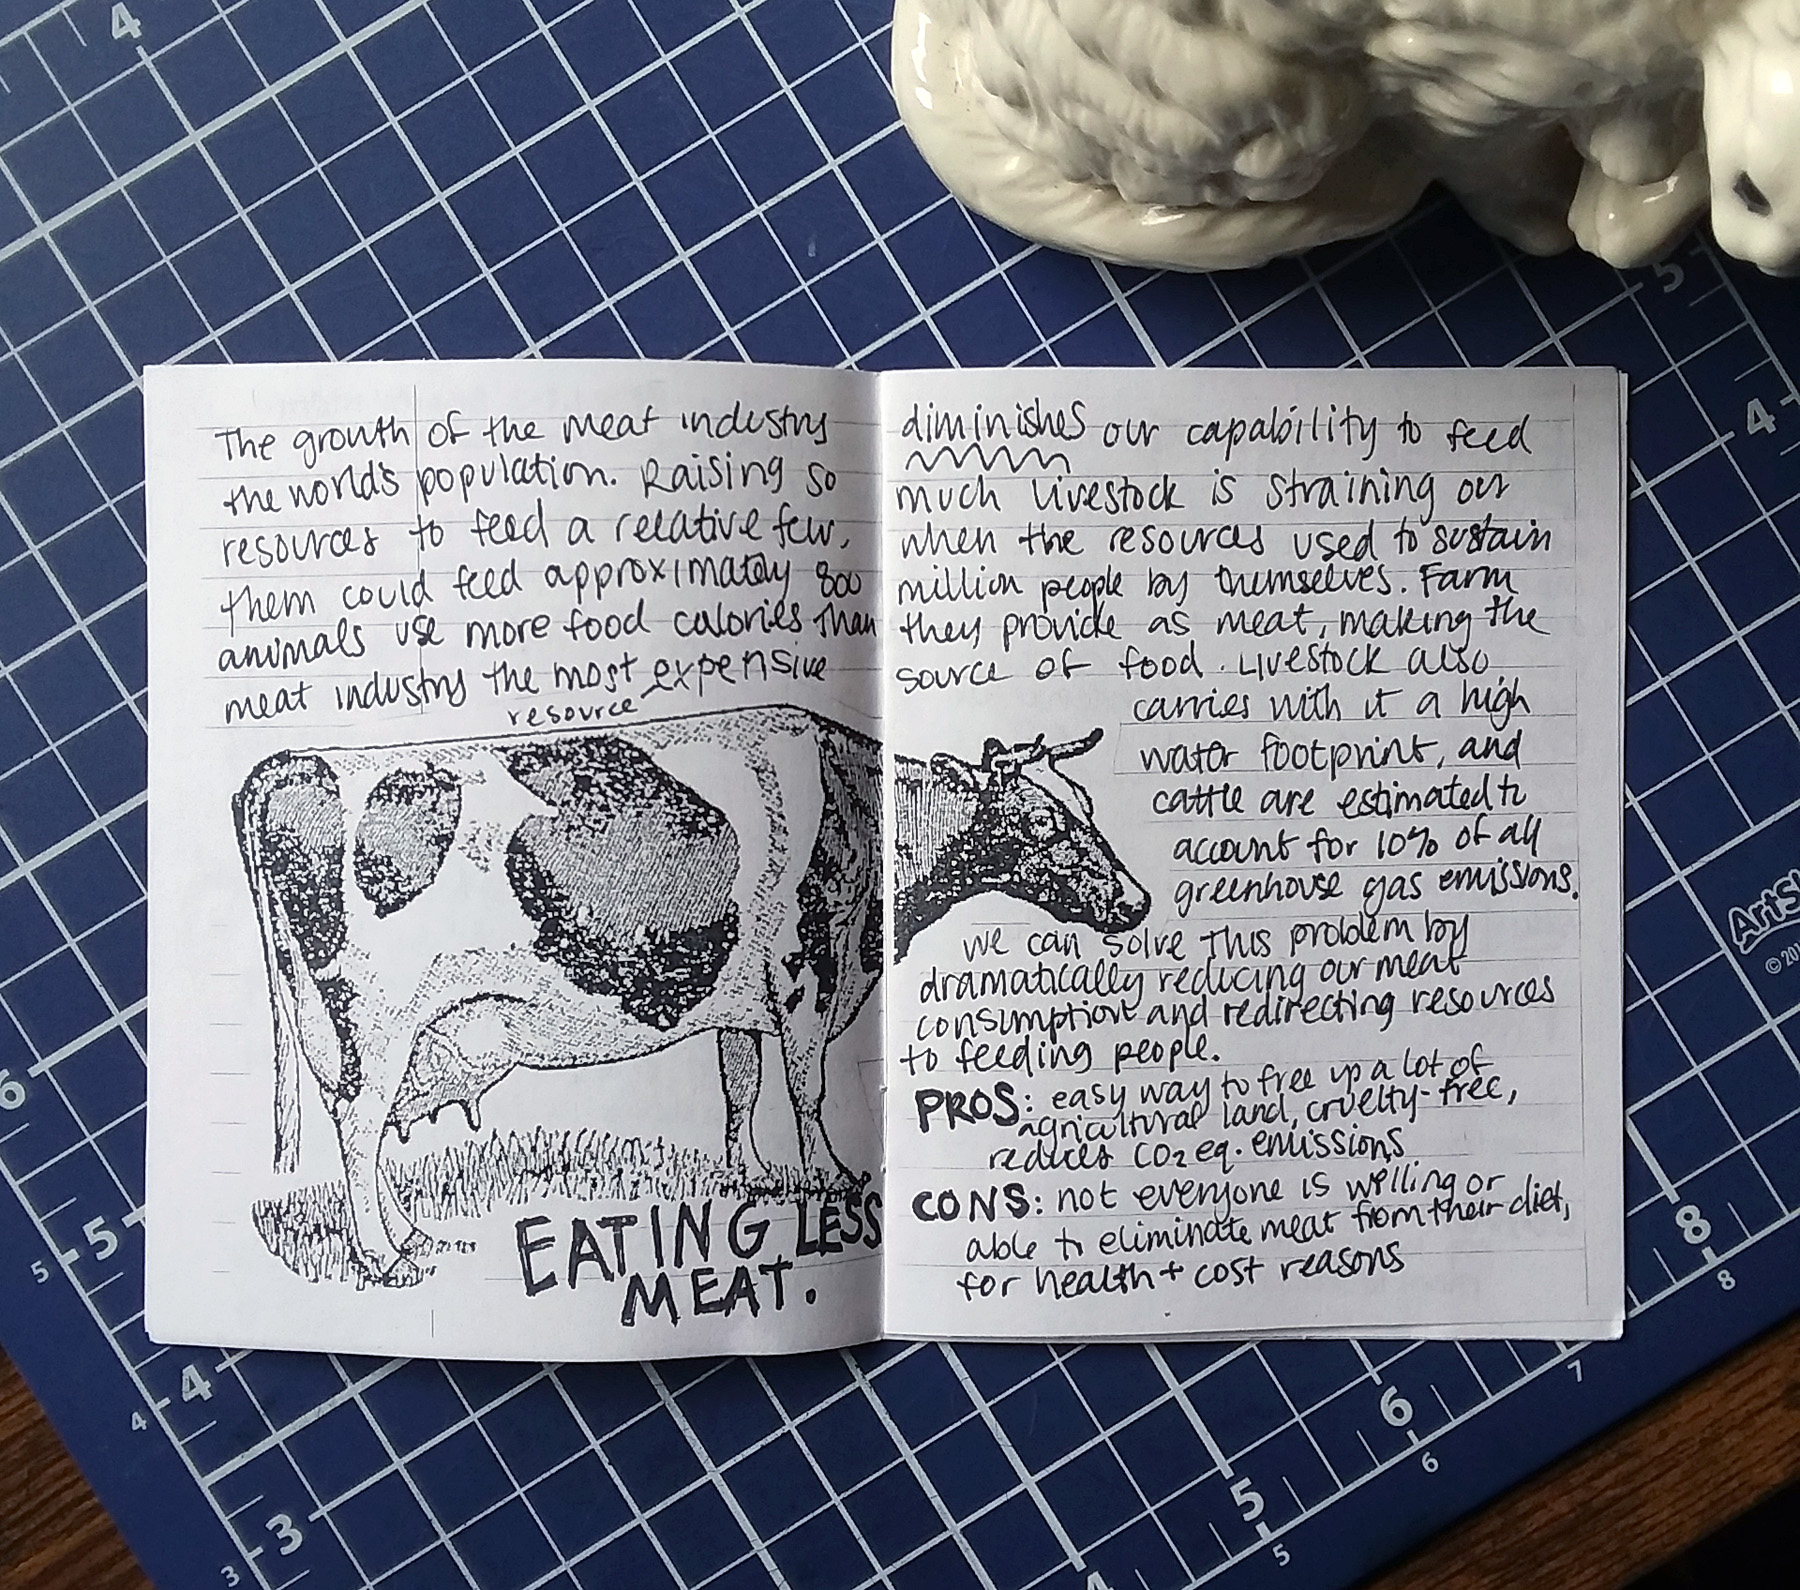 The growth of the meat industry diminishes our capability to feed
the world's population. Raising so much livestock is straining our
resources to feed a relative few, when the resources used to sustain
them could feed approximately 800 million people by themselves. Farm
animals use more food calories than they provide as meat, making the
meat industry the most resource expensive source of food. Livestock also
carries with it a high
water footprint, and
cattle are estimated to
account for 10% of all
greenhouse gas emissions.
We can solve this problem by
dramatically reducing our meat
consumption and redirecting resources
to feeding people.
PROS: easy way to free up a lot of
agricultural land, cruelty-free,
reduces CO2 eq. emissions
CONS: not everyone is willing or
able to eliminate meat from their diet,
for health + cost reasons
EATING LESS
MEAT.
4
5
4
6
5
5
4
4
3
3
8
8
7
6
6
5
5
4